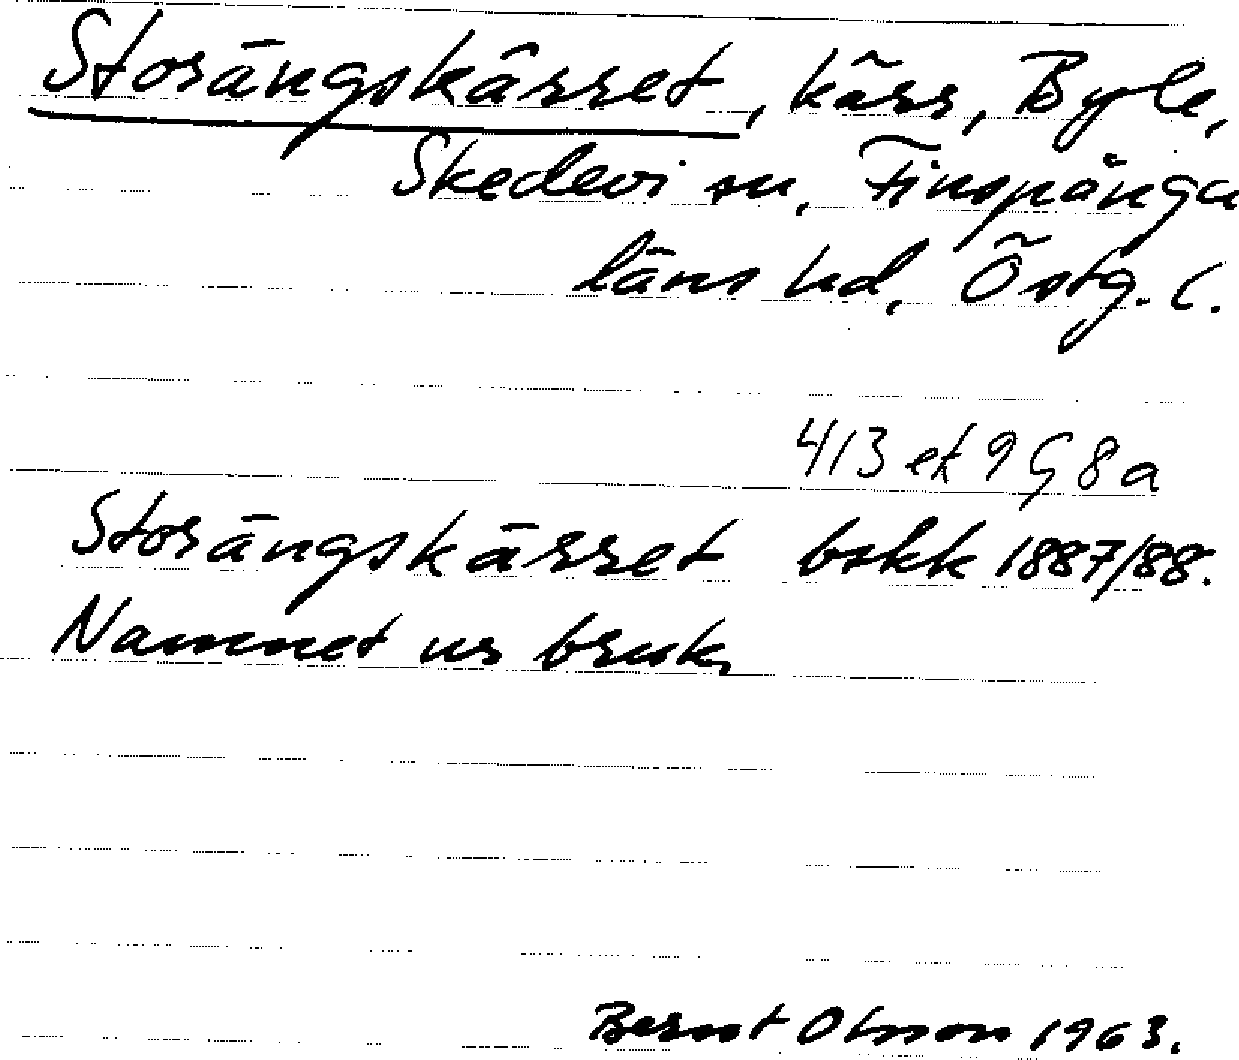 Storängskärret, kärr, Byle,
Skedevi sn, Finspånga
läns hd, Östg. l.
413 ek 9 G 8 a
Storängskärret bokk 1887/88.
Namnet ur bruk,
Bernt Olsson 1963.